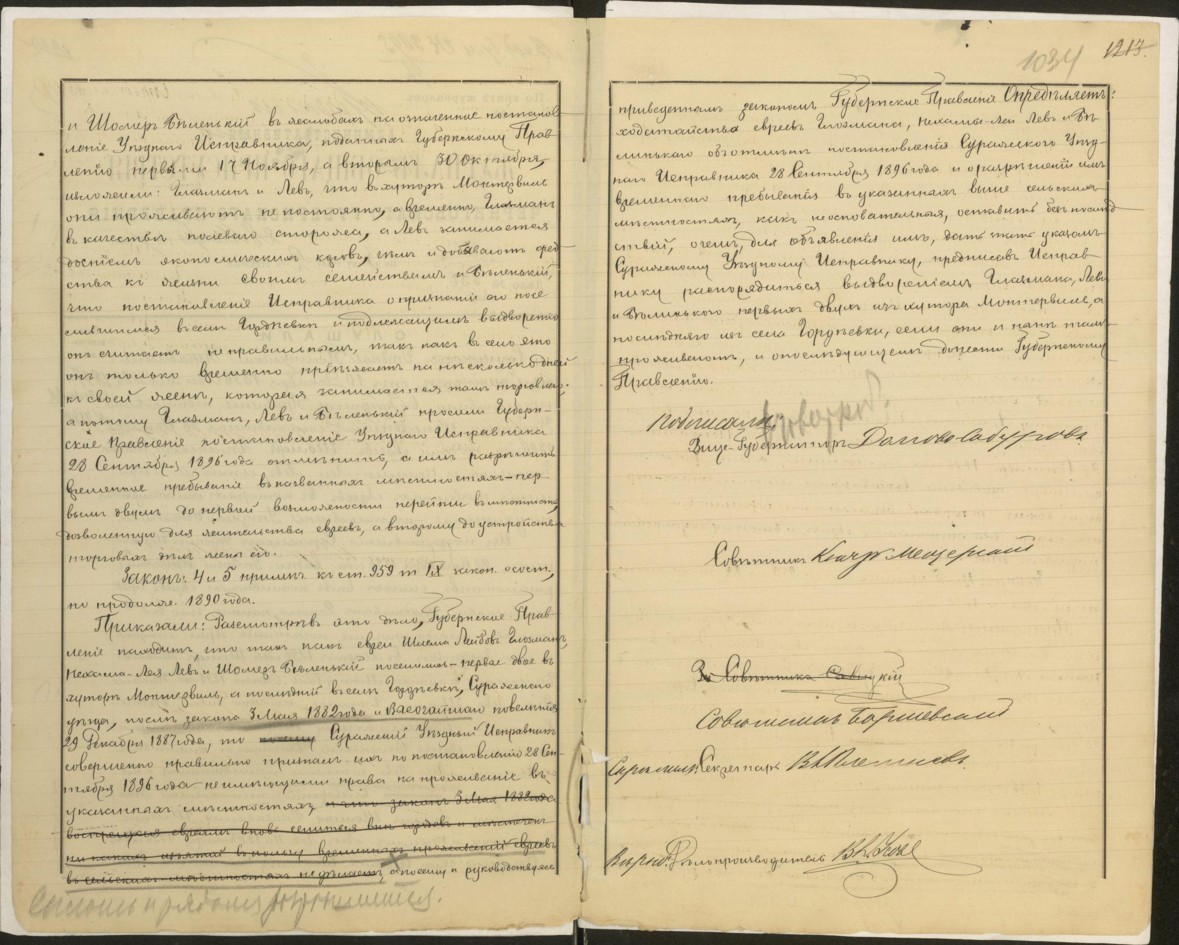 и Шомеръ Бѣленькій въ жалобахъ на означенное постанов-
леніе Уѣзднаго Исправника, поданныхъ Губернскому Прав-
ленію первыми 17 Ноября, а вторымъ 30 Октября,
изъяснили: Глазманъ и Левъ, что въ хуторѣ Монтезвиль
они проживаютъ не постоянно, а временно, Глазманъ
въ качествѣ полеваго сторожа, а Левъ занимается
доеніемъ экономическихъ коровъ, чѣмъ и добываютъ сред-
ства къ жизни своимъ семействамъ и Бѣленькій,
что постановленіе Исправника о признаніи его посе-
лившимся въ селѣ Гордѣевкѣ и подлежащимъ выдворенію
онъ считаетъ неправильнымъ, такъ какъ въ село это
онъ только временно пріѣзжаетъ на нѣсколько дней
къ своей женѣ, которая занимается тамъ торговлею,
а потому Глазманъ, Левъ и Бѣленькій просили Губерн-
ское Правленіе постановленіе Уѣзднаго Исправника
28 Сентября 1896 года отмѣнить, а имъ разрѣшить
временное пребываніе въ названныхъ мѣстностяхъ – пер-
вымъ двумъ до первой возможности перейти въ мѣстность,
дозволенную для жительства евреевъ, а второму до устройства
торговыхъ дѣлъ жены его.
Законъ: 4 и 5 примѣч. къ ст. 959 т. IX закон. о сост.,
по продолж. 1890 года.
Приказали: Разсмотрѣвъ это дѣло, Губернское Прав-
леніе находитъ, что такъ какъ евреи Шлема Лейбовъ Глозманъ,
Нехама-Лея Левъ и Шомеръ Бѣленькій поселились – первые двое въ
хуторѣ Монтезвиль, а послѣдній въ селѣ Гордѣевкѣ, Суражскаго
уѣзда, послѣ закона 3 Мая 1882 года и Высочайшаго повелѣнія
29 Декабря 1887 года, то Суражскій Уѣздный Исправникъ
совершенно правильно призналъ ихъ по постановленію 28 Сен-
тября 1896 года не имѣющими права на проживаніе въ
указанныхъ мѣстностяхъ, и что законъ 3 Мая 1882 года
воспрещая евреямъ вновь селиться внѣ городовъ и мѣстечекъ
ни какихъ изъятій въ пользу временнаго проживанія евреевъ
въ сельскихъ мѣстностяхъ не дѣлаетъ, а посему и руководствуясь
1034 1213.
приведеннымъ закономъ Губернское Правленіе Опредѣляетъ:
ходатайства евреевъ Глозмана, Нехамы-Леи Левъ и Бѣ-
линькаго объ отмѣнѣ постановленія Суражскаго Уѣзд-
наго Исправника 28 Сентября 1896 года и о разрѣшеніи имъ
временнаго пребыванія въ указанныхъ выше сельскихъ
мѣстностяхъ, какъ неосновательныя, оставить безъ послѣд-
ствій, о чемъ, для объявленія имъ, дать знать указомъ
Суражскому Уѣздному Исправнику, предписавъ Исправ-
нику распорядиться выдвореніемъ Глазмана, Левъ
и Бѣлинькаго первыхъ двухъ изъ хутора Монтервиль, а
послѣдняго изъ села Гордѣевки, если они и нынѣ тамъ
проживаютъ, и о послѣдующемъ донести Губернскому
Правленію.
Подписали:
Вице-Губернаторъ
Совѣтникъ Князь Мещерскій
За Совѣтника Савицкій
Совѣтникъ
Скрѣпилъ: Секретарь
Вѣрно: Дѣлопроизводитель